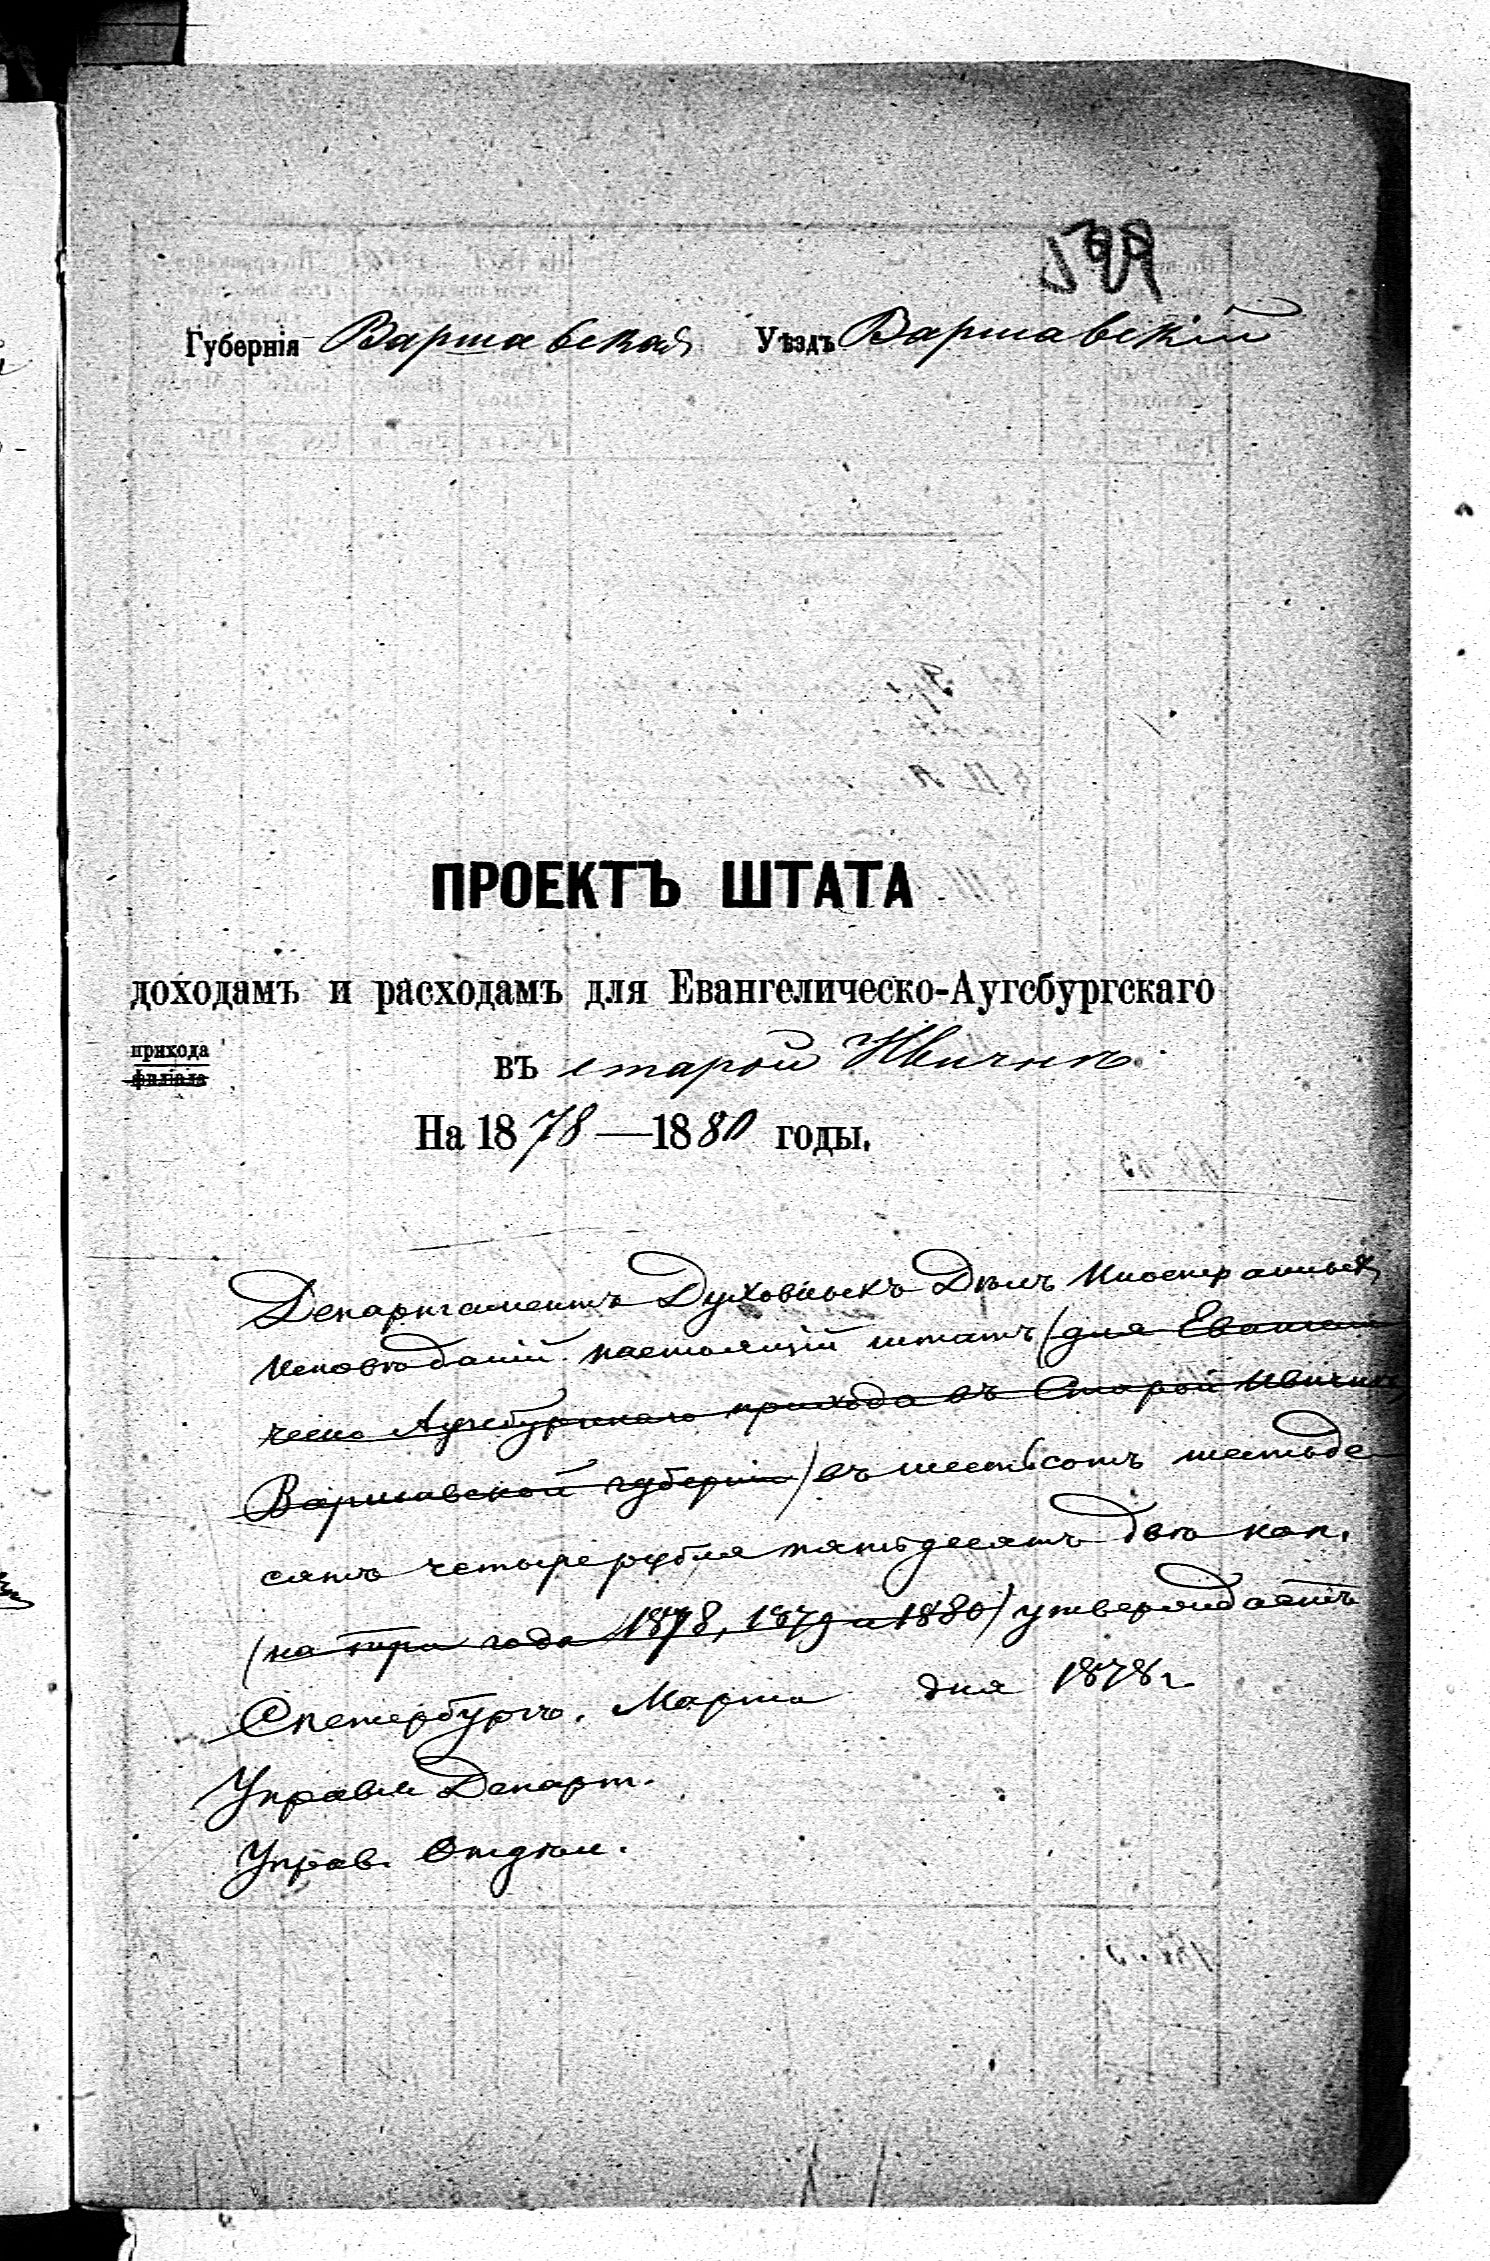 Губернія Варшавская Уѣздъ Варшавскій
ПРОЕКТЪ ШТАТА
доходамъ и расходамъ для Евангелическо-Аугсбургскаго
прихода
филіала
въ старой Ивичнѣ.
На 1878—1880 годы.
Департаментъ Духовныхъ Дѣлъ Иностранныхъ
Исповѣданій настоящій штатъ (для Евангели
ческо Аугсбургскаго прихода въ Старой Ивичнѣ,
Варшавской губерніи) въ шестьсотъ шестьде
сятъ четыре рубля пятьдесятъ двѣ коп.
(на три года 1878, 1879 и 1880) утверждаетъ
СПетербургъ. Марта дня 1878 г.
Управл Департ.
Управ. Отдѣл.